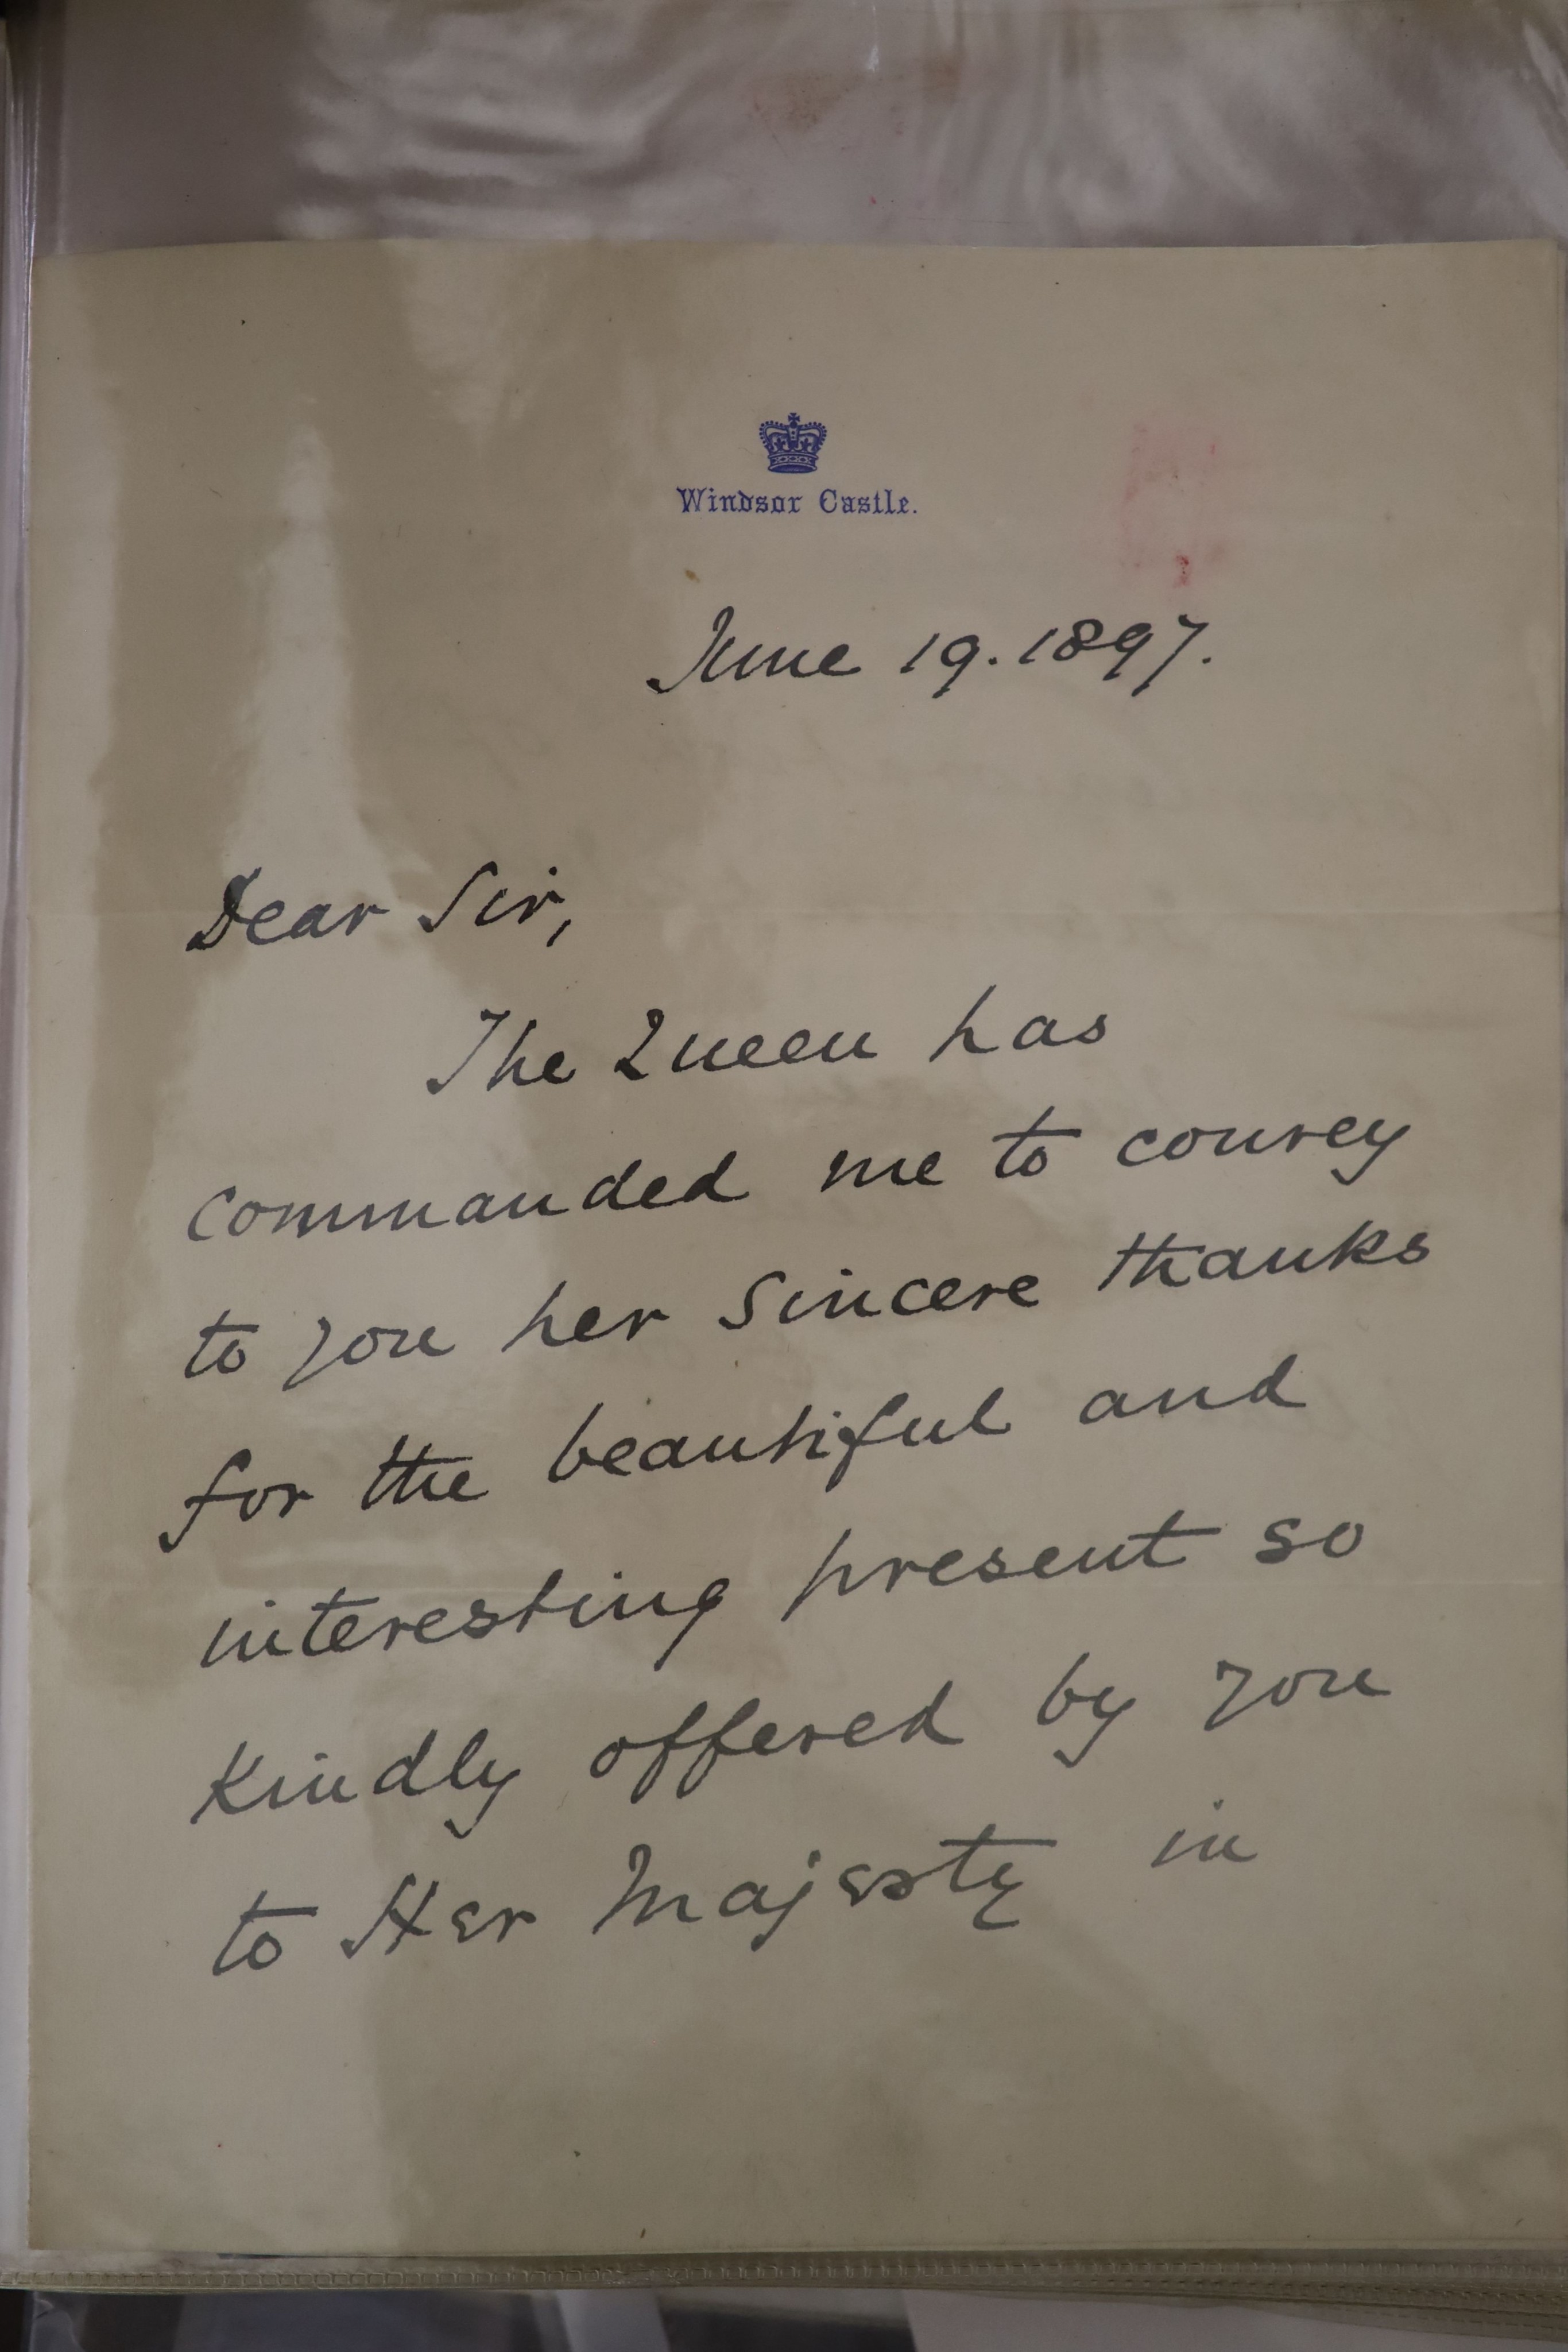 Windsor Castle.
June 19. 1897.
Dear Sir,
The Queen has
commanded me to convey
to you her sincere thanks
for the beautiful and
interesting present so
kindly offered by you
to Her Majesty in